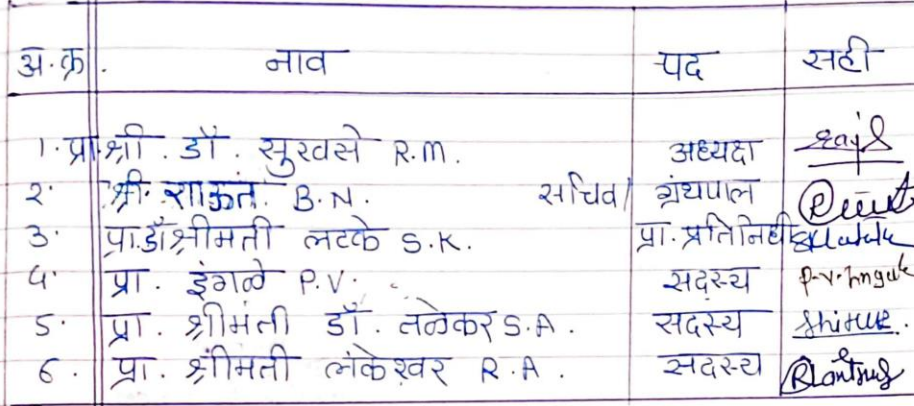 अ.क्र. नाव पद सही
1. प्रा.श्री. डॉ. सुरवसे R.M. अध्यक्ष
२. श्री. B.N. सचिव/ ग्रंथपाल
3. प्रा.डॉ श्रीमती लटके S.K. प्रा. प्रतिनिधी
4. प्रा. इंगळे P.V. सदस्य P.V. Ingale
5. प्रा. श्रीमती डॉ. तळेकर S.A. सदस्य
6. प्रा. श्रीमती लंकेश्वर R.A. सदस्य